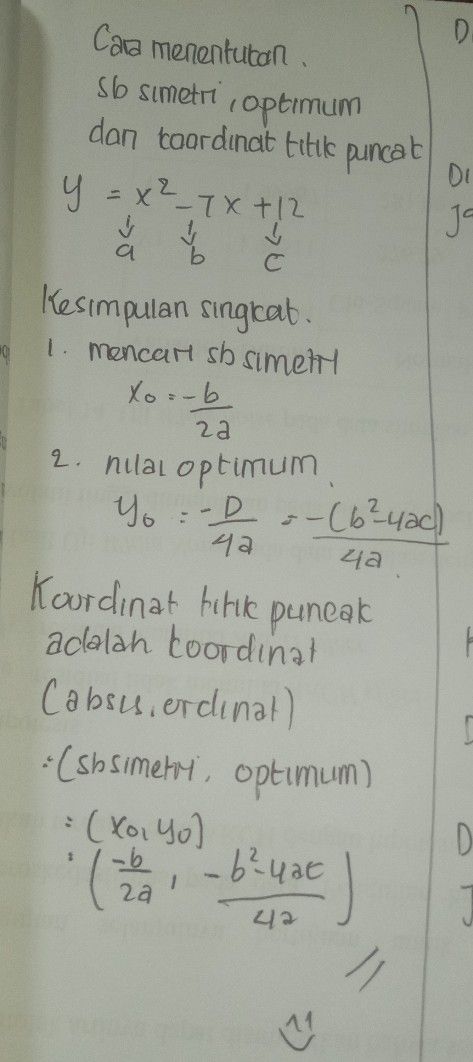 Cara menentukan.
sb simetri, optimum
dan koordinat titik puncak
y = x² - 7x + 12
↓ ↓ ↓
a b c
Kesimpulan singkat.
1. mencari sb simetri
x₀ = -b/2a
2. nilai optimum.
y₀ = -D/4a = -(b²-4ac)/4a
Koordinat titik puncak
adalah koordinat
(absis, ordinat)
=(sb simetri, optimum)
= (x₀, y₀)
= (-b/2a, -b²-4ac/4a)